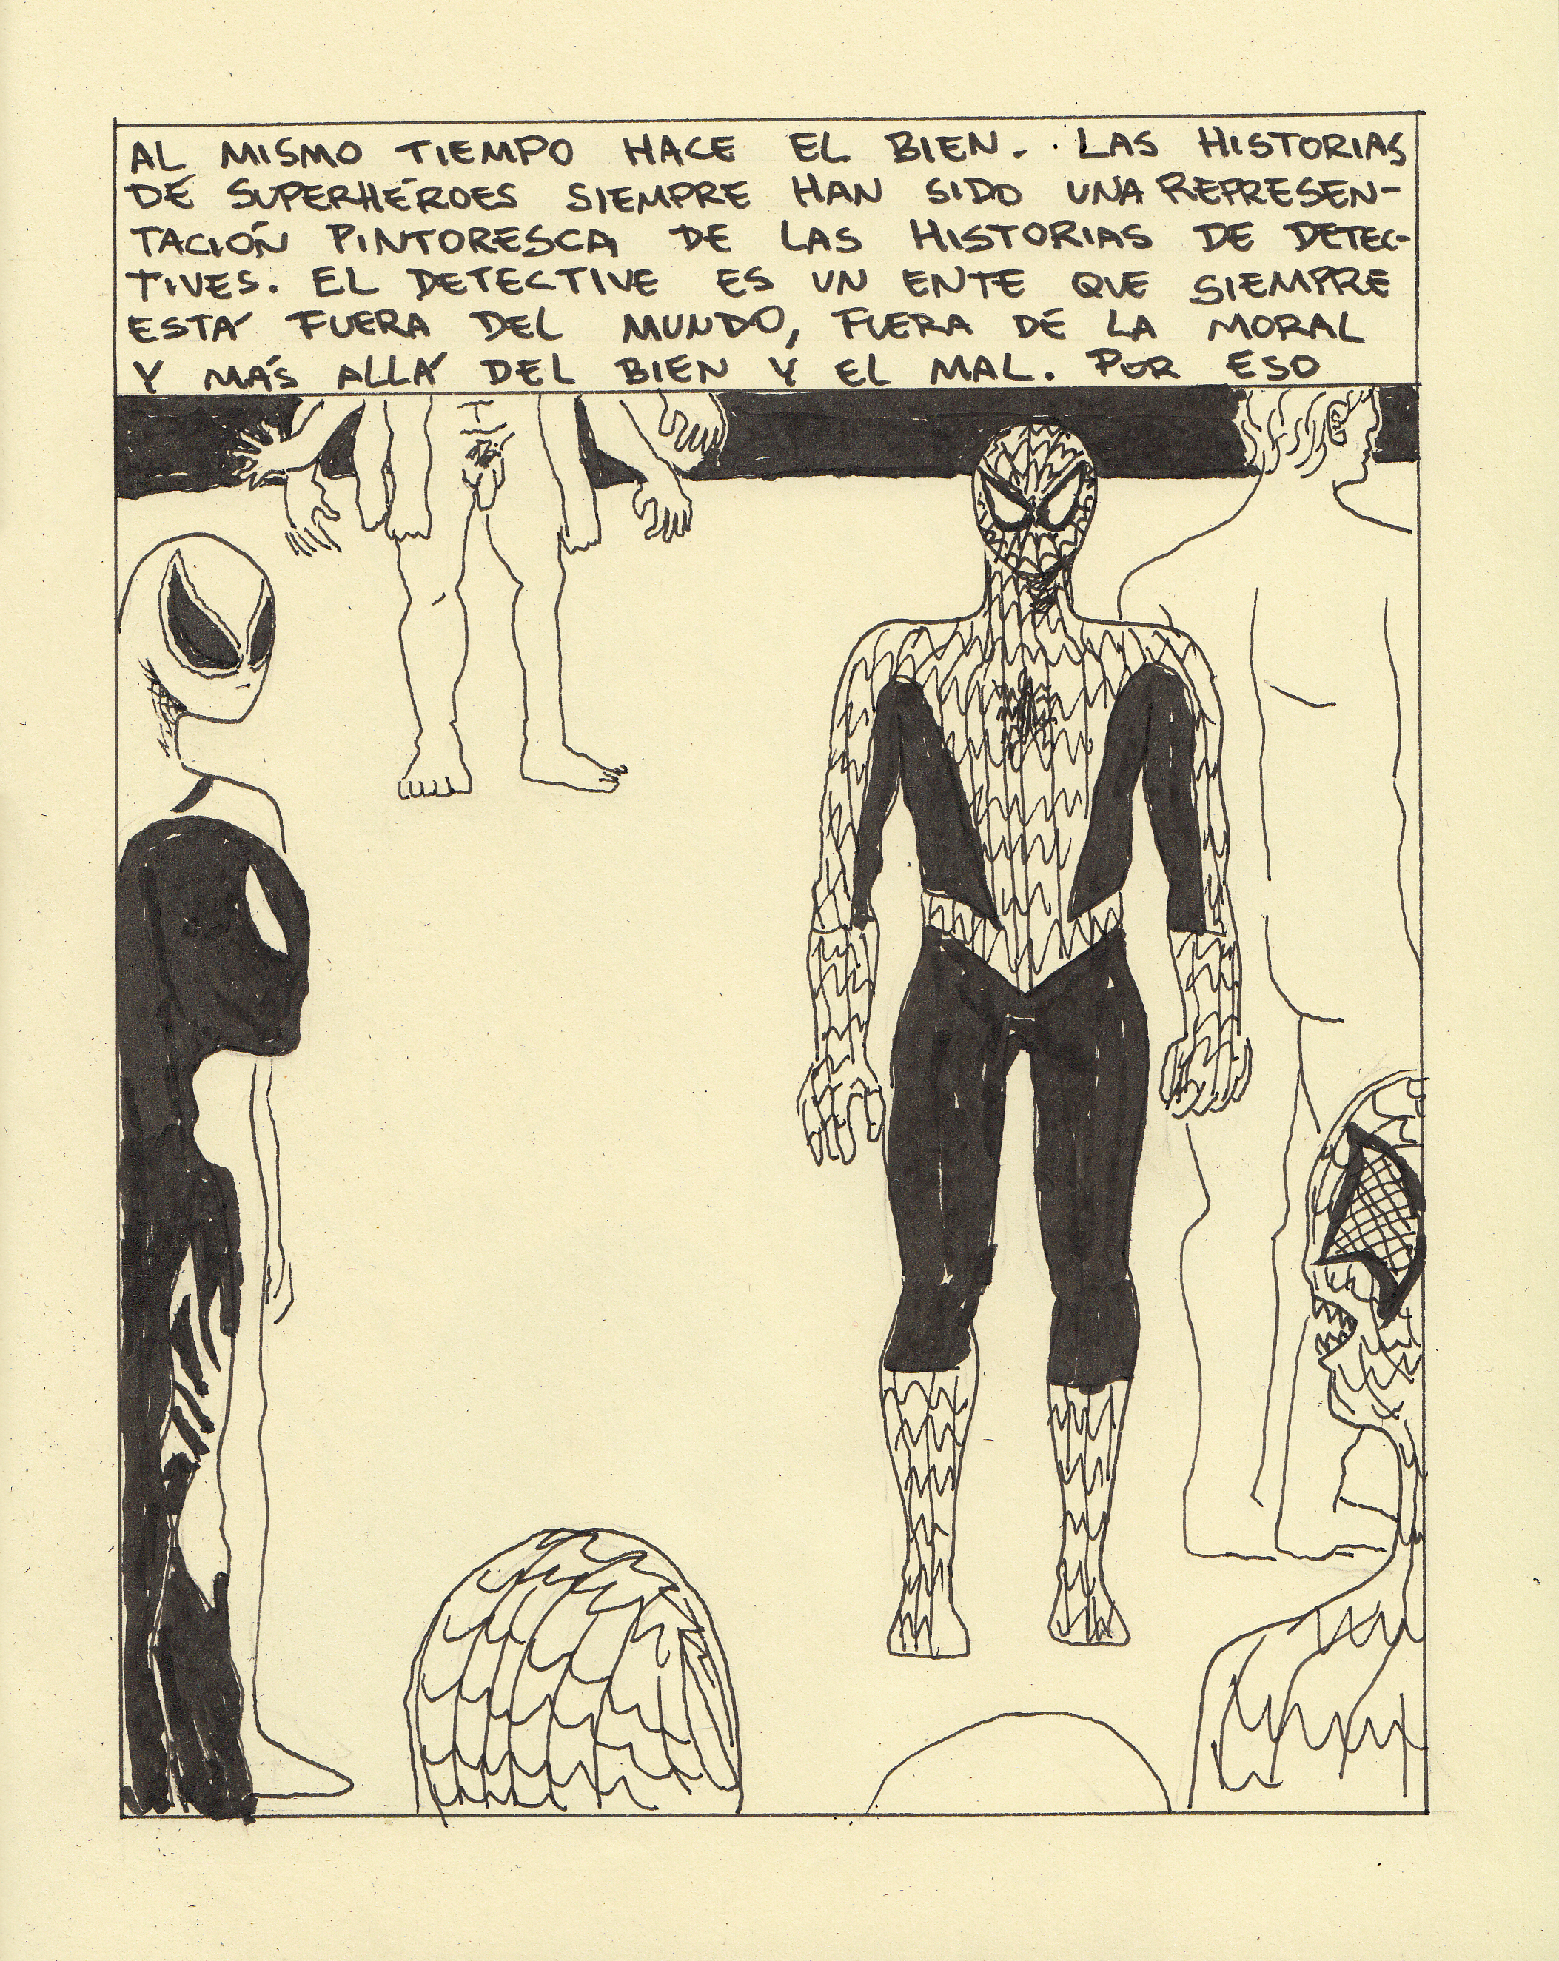 AL MISMO TIEMPO HACE EL BIEN. LAS HISTORIAS
DE SUPERHÉROES SIEMPRE HAN SIDO UNA REPRESEN-
TACIÓN PINTORESCA DE LAS HISTORIAS DE DETEC-
TIVES. EL DETECTIVE ES UN ENTE QUE SIEMPRE
ESTÁ FUERA DEL MUNDO, FUERA DE LA MORAL
Y MÁS ALLÁ DEL BIEN Y EL MAL. POR ESO